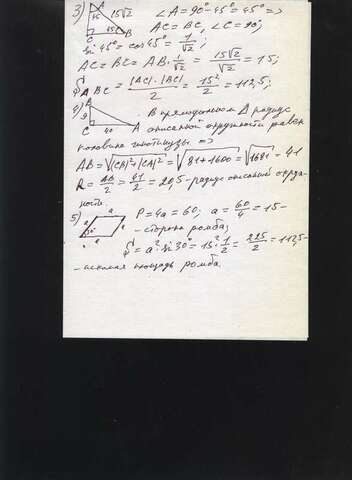 3) A 45 15√2 ∠A = 90° - 45° = 45° =>
C 45° B AC = BC, ∠C = 90°;
sin 45° = cos 45° = 1/√2;
AC = BC = AB · 1/√2 = 15√2/√2 = 15;
S ABC = |AC| · |BC| / 2 = 15²/2 = 112,5;
4) 9 В прямоугольном Δ радиус
C 40 A описанной окружности равен
половине гипотенузы =>
AB = √(CB)²+(CA)² = √81+1600 = √1681 = 41
R = AB/2 = 41/2 = 20,5 - радиус описанной окруж-
ности.
5) a a 30° P = 4a = 60; a = 60/4 = 15 -
- сторона ромба;
S = a² · sin 30° = 15² · 1/2 = 225/2 = 112,5 -
- искомая площадь ромба